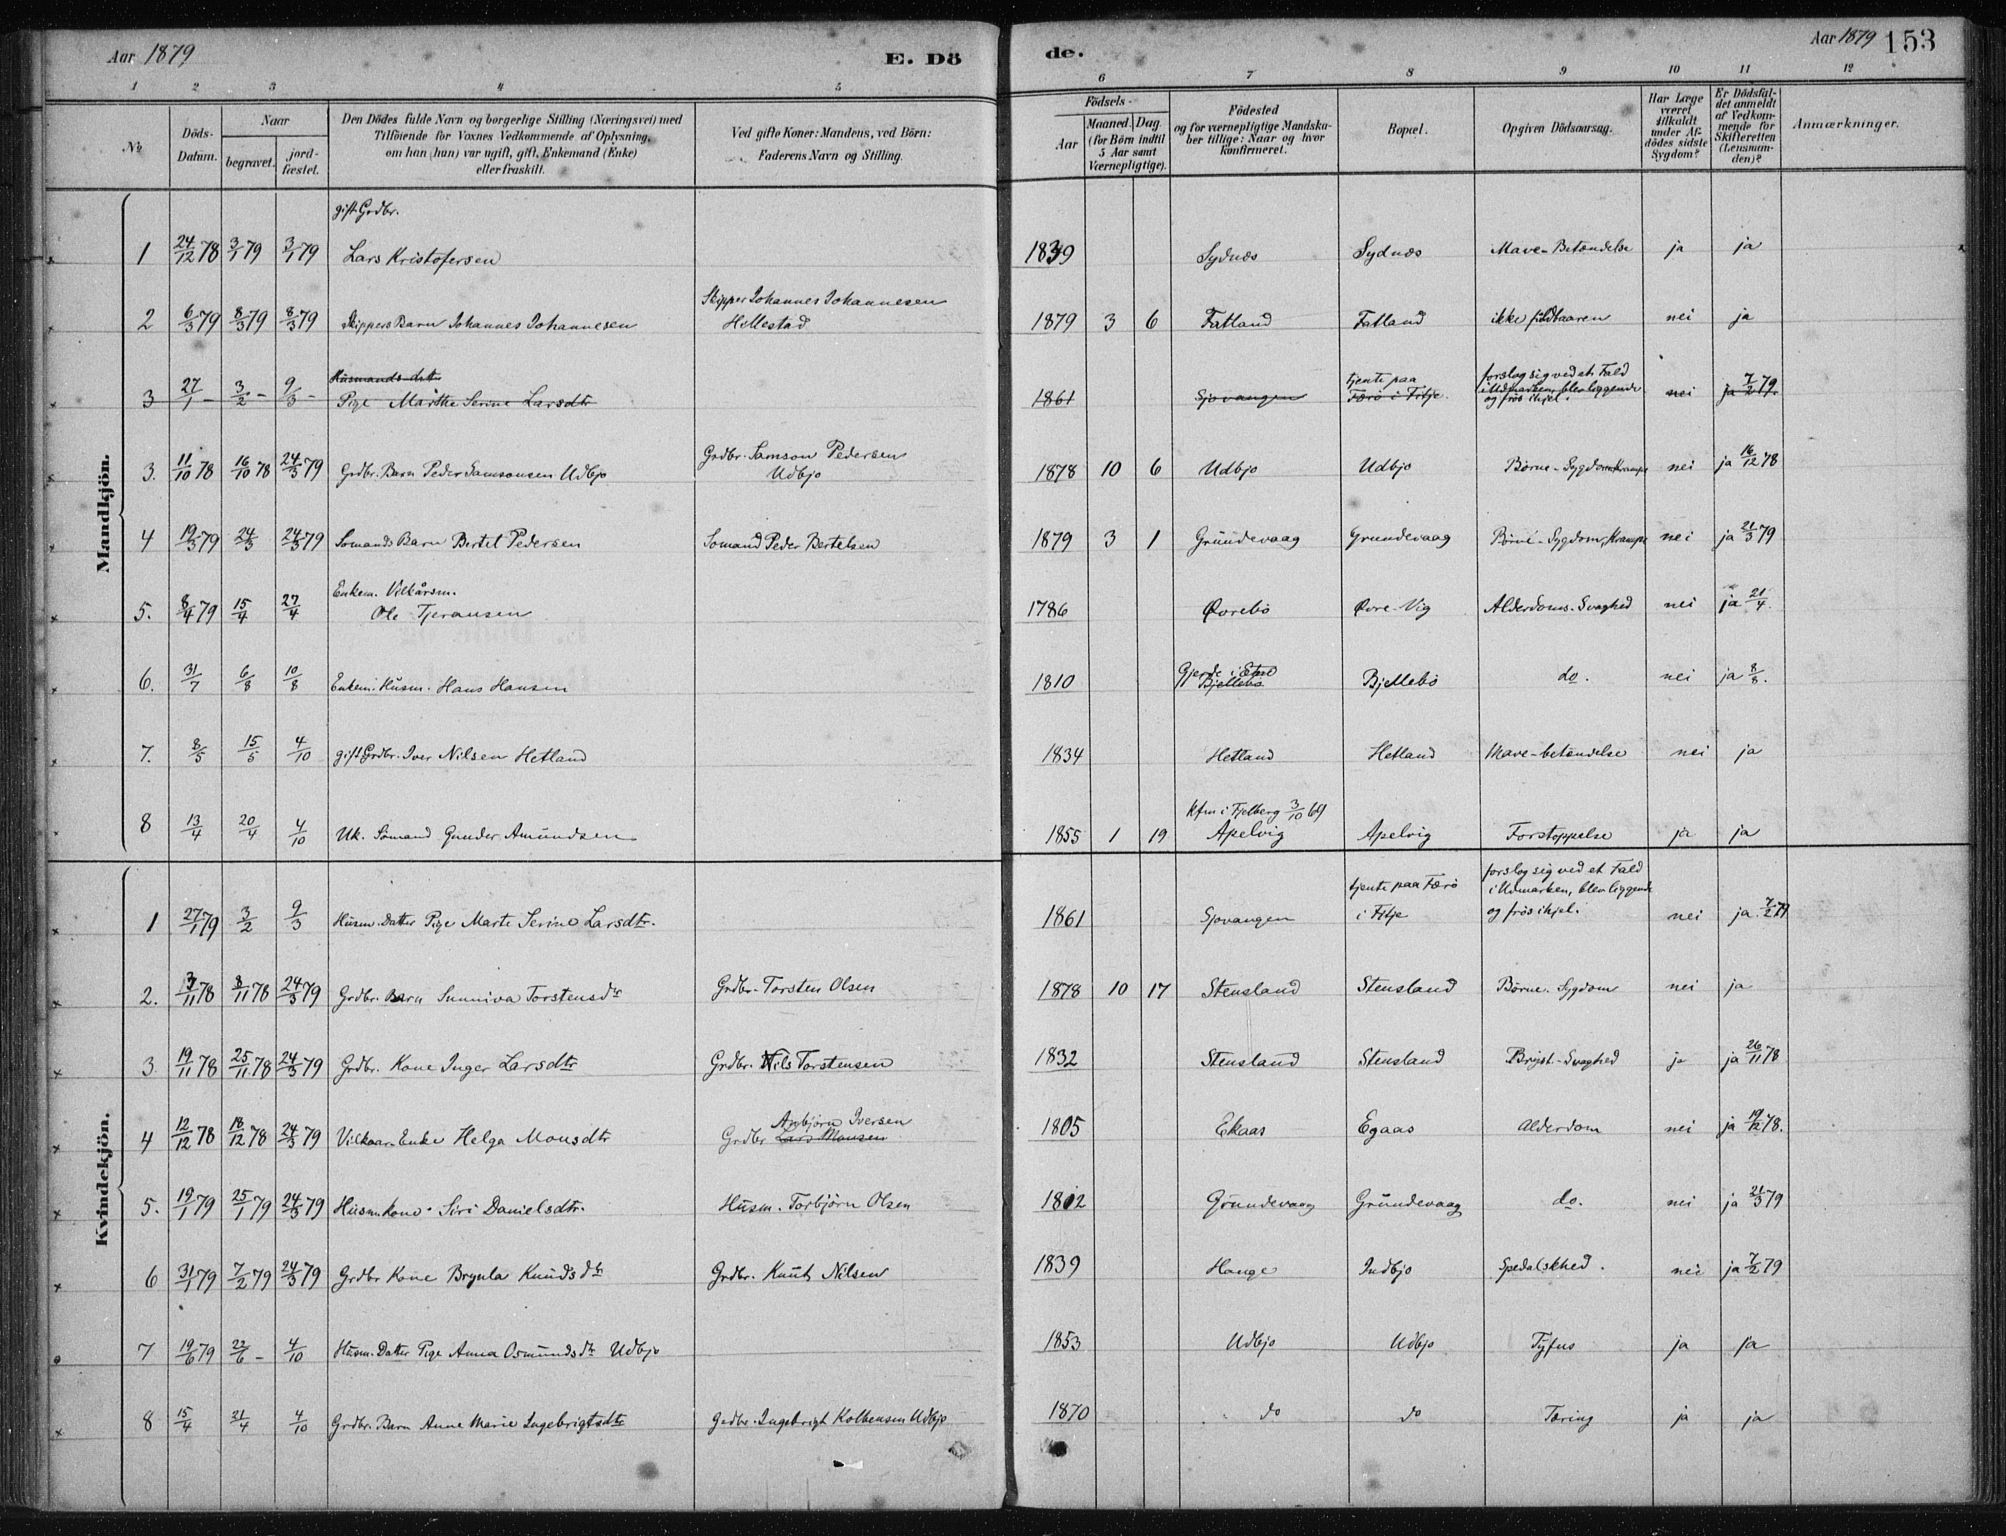 Aar 1879 E. Dö
de. Aar 1879 153
1 2 3 4 5 6 7 8 9 10 11 12
№
Döds-Datum.
Naar
begravet. jord-fæstet.
Den Dödes fulde Navn og borgerlige Stilling (Næringsvei) med
Tilföiende for Voxnes Vedkommende af Oplysning,
om han (hun) var ugift, gift, Enkemand (Enke)
eller fraskilt.
Ved gifte Koner: Mandens, ved Börn:
Faderens Navn og Stilling.
Födsels-
Aar
Maaned. Dag
(for Börn indtil
5 Aar samt
Værnepligtige).
Födested
og for værnepligtige Mandska-
ber tillige: Naar og hvor
konfirmeret.
Bopæl.
Opgiven Dödsaarsag.
Har Læge
været
tilkaldt
under Af-
dödes sidste
Sygdom?
Er Dödsfal-
det anmeldt
af Vedkom-
mende for
Skifteretten
(Lensman-
den)?
Anmærkninger.
Mandkjön.
gift Grdbr.
1 24/12 78 3/1 79 3/1 79 Lars Kristofersen 1839 Sydnæs Sydnæs Mave-Betændelse ja ja
Skipper Johannes Johannesen
2 6/3 79 8/3 79 8/3 79 Skippers Barn Johannes Johannesen Hillestad 1879 3 6 Fatland Fatland ikke fuldbaaren nei ja
Husmands-datt. tjente paa forslog sig ved et Fald
3 27/1 - 3/2 - 9/3 - Pige Marthe Serine Larsdtr 1861 Sjovangen Færö i Fitje. i Udmarken, blev liggende nei ja 7/2 79.
og frös ihjel.
Grdbr. Samson Pedersen
3. 11/10 78 16/10 78 24/3 79 Grdbr. Barn Peder Samsonsen Udbjo Udbjo 1878 10 6 Udbjo Udbjo Börne-Sygdom Krampe nei ja 16/12 78
4 19/3 79 24/3 24/3 79 Somands Barn Bertel Pedersen Somand Peder Bertelsen 1879 3 1 Grundevaag Grundevaag Börne-Sygdom, Krampe nei ja 21/3 79
Enkem. Vilkårsm.
5. 8/4 79 15/4 27/4 Ole Tjeransen 1786 Övrebö Övre-Vig Alderdoms-Svaghed nei ja 21/4.
Gjerde i Etne
6. 31/7 6/8 10/8 Enkem. Husm. Hans Hansen 1810 Bjellebö Bjellebö do. nei ja 8/8.
7. 8/5 15/5 4/10 gift Grdbr. Iver Nilsen Hetland 1834 Hetland Hetland Mave-betændelse nei ja
kfm i Fjelberg 3/10 69
8 13/4 20/4 4/10 Uk. Sömand Gunder Amundsen 1855 1 19 Apelvig Apelvig Forstoppelse ja ja
Kvindekjön.
tjente paa Færö forslog sig ved et Fald
i Udmarken, blev liggende
1 27/1 79 3/2 9/3 Husm. Datter Pige Marte Serine Larsdtr. 1861 Sjovangen i Fitje og frös ihjel. nei ja 7/2 79
2. 3/11 78 8/11 78 24/3 79 Grdbr. Barn Sunniva Torstensdr Grdbr. Torsten Olsen 1878 10 17 Stensland Stensland Börne-Sygdom nei ja
3 19/11 78 25/11 78 24/3 79 Grdbr. Kone Inger Larsdtr Grdbr. Nils Torstensen 1832 Stensland Stensland Bryst-Svaghed ja ja 26/11 78
Anbjörn Iversen
4 12/12 78 18/12 78 24/3 79 Vilkaar-Enke Helga Monsdtr Grdbr Lars Monsen 1805 Ekaas Egaas Alderdom nei ja 19/12 78.
5. 19/1 79 25/1 79 24/3 79 Husm. Kone Siri Danielsdtr. Husm. Torbjörn Olsen 1802 Grundevaag Grundevaag do. nei ja 21/3 79
6 31/1 79 7/2 79 24/3 79 Grdbr Kone Brynla Knudsdtr Grdbr. Knut Nilsen 1839 Hauge Indbjo Spedalskhed. nei ja 7/2 79
7 19/6 79 22/6 - 4/10 Husm. Datter Pige Anna Osmundsdtr Udbjo 1853 Udbjo Udbjo Tyfus ja ja
8 15/4 21/4 4/10 Grdbr. Barn Anne Marie Ingebrigtsdtr Grdbr. Ingebrigt Kolbensen Udbjo 1870 do do Tæring ja ja